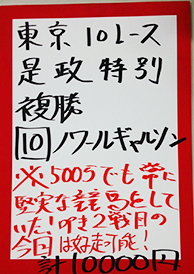 東京10レース
是政特別
複勝
10 ノワールギャルソン
※500万でも常に
堅実な競馬をして
いたひき2戦目の
今回は好走可能!
計10000円